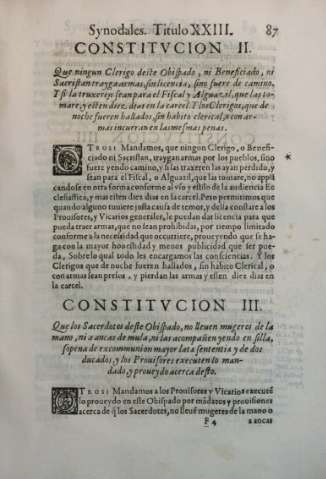 Synodales. Titulo XXIII. 87
CONSTITVCION II.
Que ningun Clerigo deste Obispado, ni Beneficiado, ni
Sacristan trayga armas, sin licencia, sino fuere de camino.
Y si la truxere sean para el Fiscal y Alguazil, que las to-
mare, y esten diez dias en la carcel. Y los Clerigos, que de
noche fueren hallados, sin habito clerical, o con ar-
mas incurran en las mesmas penas.
OTROSI Mandamos, que ningun Clerigo, o Benefi-
ciado ni Sacristan, traygan armas por los pueblos, sino
fuere yendo camino, y si las traxeren las ayan perdido, y
sean para el Fiscal, o Alguazil, que las tomare, no apli
candose en otra forma conforme al vso y estilo de la audiencia Ec
clesiastica, y mas esten diez dias en la carcel. Pero permitimos que
quando alguno tuuiere justa causa de temor, y della constare a los
Prouisores, y Vicarios generales, le puedan dar licencia para que
pueda traer armas, que no sean prohibidas, por tiempo limitado
conforme a la necesidad que occurriere, proueyendo que se ha-
ga con la mayor honestidad y menos publicidad que ser pue-
da, Sobre lo qual todo les encargamos las consciencias. Y los
Clerigos que de noche fueren hallados, sin habito Clerical, o
con armas sean presos, y pierdan las armas y esten diez dias en
la carcel.
CONSTITVCION III.
Que los Sacerdotes deste Obispado, no lleuen mugeres de la
mano, ni a ancas de mula, ni las acompañen yendo en silla,
sopena de excomunion mayor latæ sententiæ y de dos
ducados, y los Prouisores executen lo man-
dado, y proueydo acerca desto.
OTROSI Mandamos a los Prouisores y Vicarios executẽ
lo proueydo en este Obispado por mãdatos y prouisiones
acerca de q̃ los Sacerdotes, no lleuẽ mugeres de la mano o
F 4 a ancas